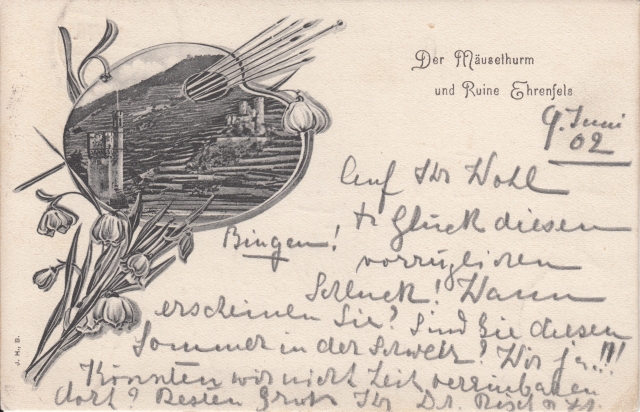 Der Mäusethurm
und Ruine Ehrenfels
9. Juni
02
Auf Ihr Wohl
& Glück diesen
Bingen!
vorzüglichen
Schluck! Wann
erscheinen Sie? Sind Sie diesen
Sommer in der Schweiz? Wir ja!!!
Könnten wir nicht Zeit vereinbaren
dort? Besten Gruß Ihr Dr.
J. H., B.